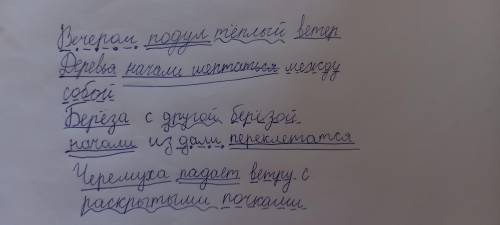 Вечером подул тёплый ветер
Деревья начали шептаться между
собой
Берёза с другой берёзой
начали из дали переклетатся
Черемуха падает ветру. с
раскрытыми почками